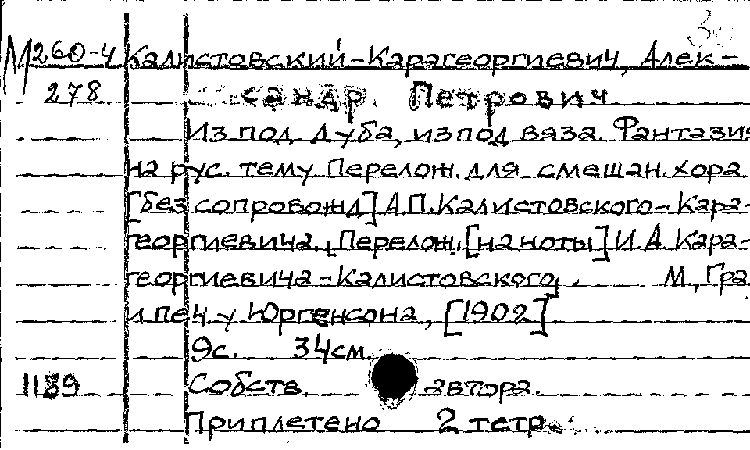 М260-4 Калистовский-Карагеоргиевич, Алек-
278 сандр Петрович
Из под дуба, из под вяза. Фантазия
на рус. тему Перелож. для смешан. хора
[без сопровожд] А.П.Калистовского-Кара-
георгиевича. Перелож. [на ноты] И.А Кара-
георгиевича-Калистовского. М., Гра
и печ у Юргенсона, [1902]
9с. 34см
1189 Собств. автора.
Приплетено 2 тетр.